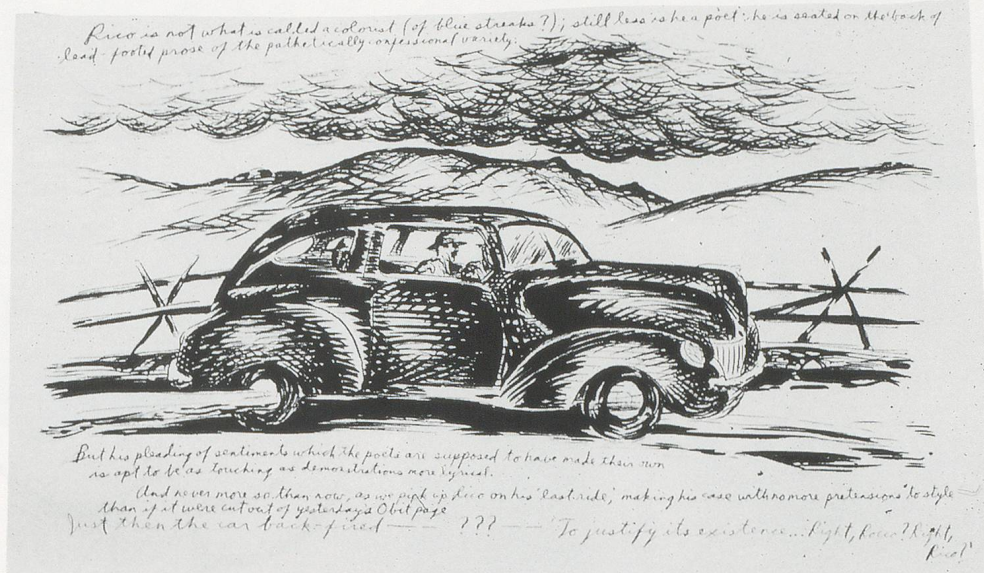 Rico is not what is called a colorist (of blue streaks?); still less is he a poet: he is seated on the back of
lead-footed prose of the pathetically confessional variety.
But his pleading of sentiments which the poets are supposed to have made their own
is apt to be as touching as demonstrations more lyrical.
And never more so than now, as we pick up Rico on his 'last ride,' making his case with no more pretensions to style
than if it were cut out of yesterday's Obit page
Just then the car back-fired — — ??? — 'To justify its existence... Right, Rocco? Right,
Rico?'